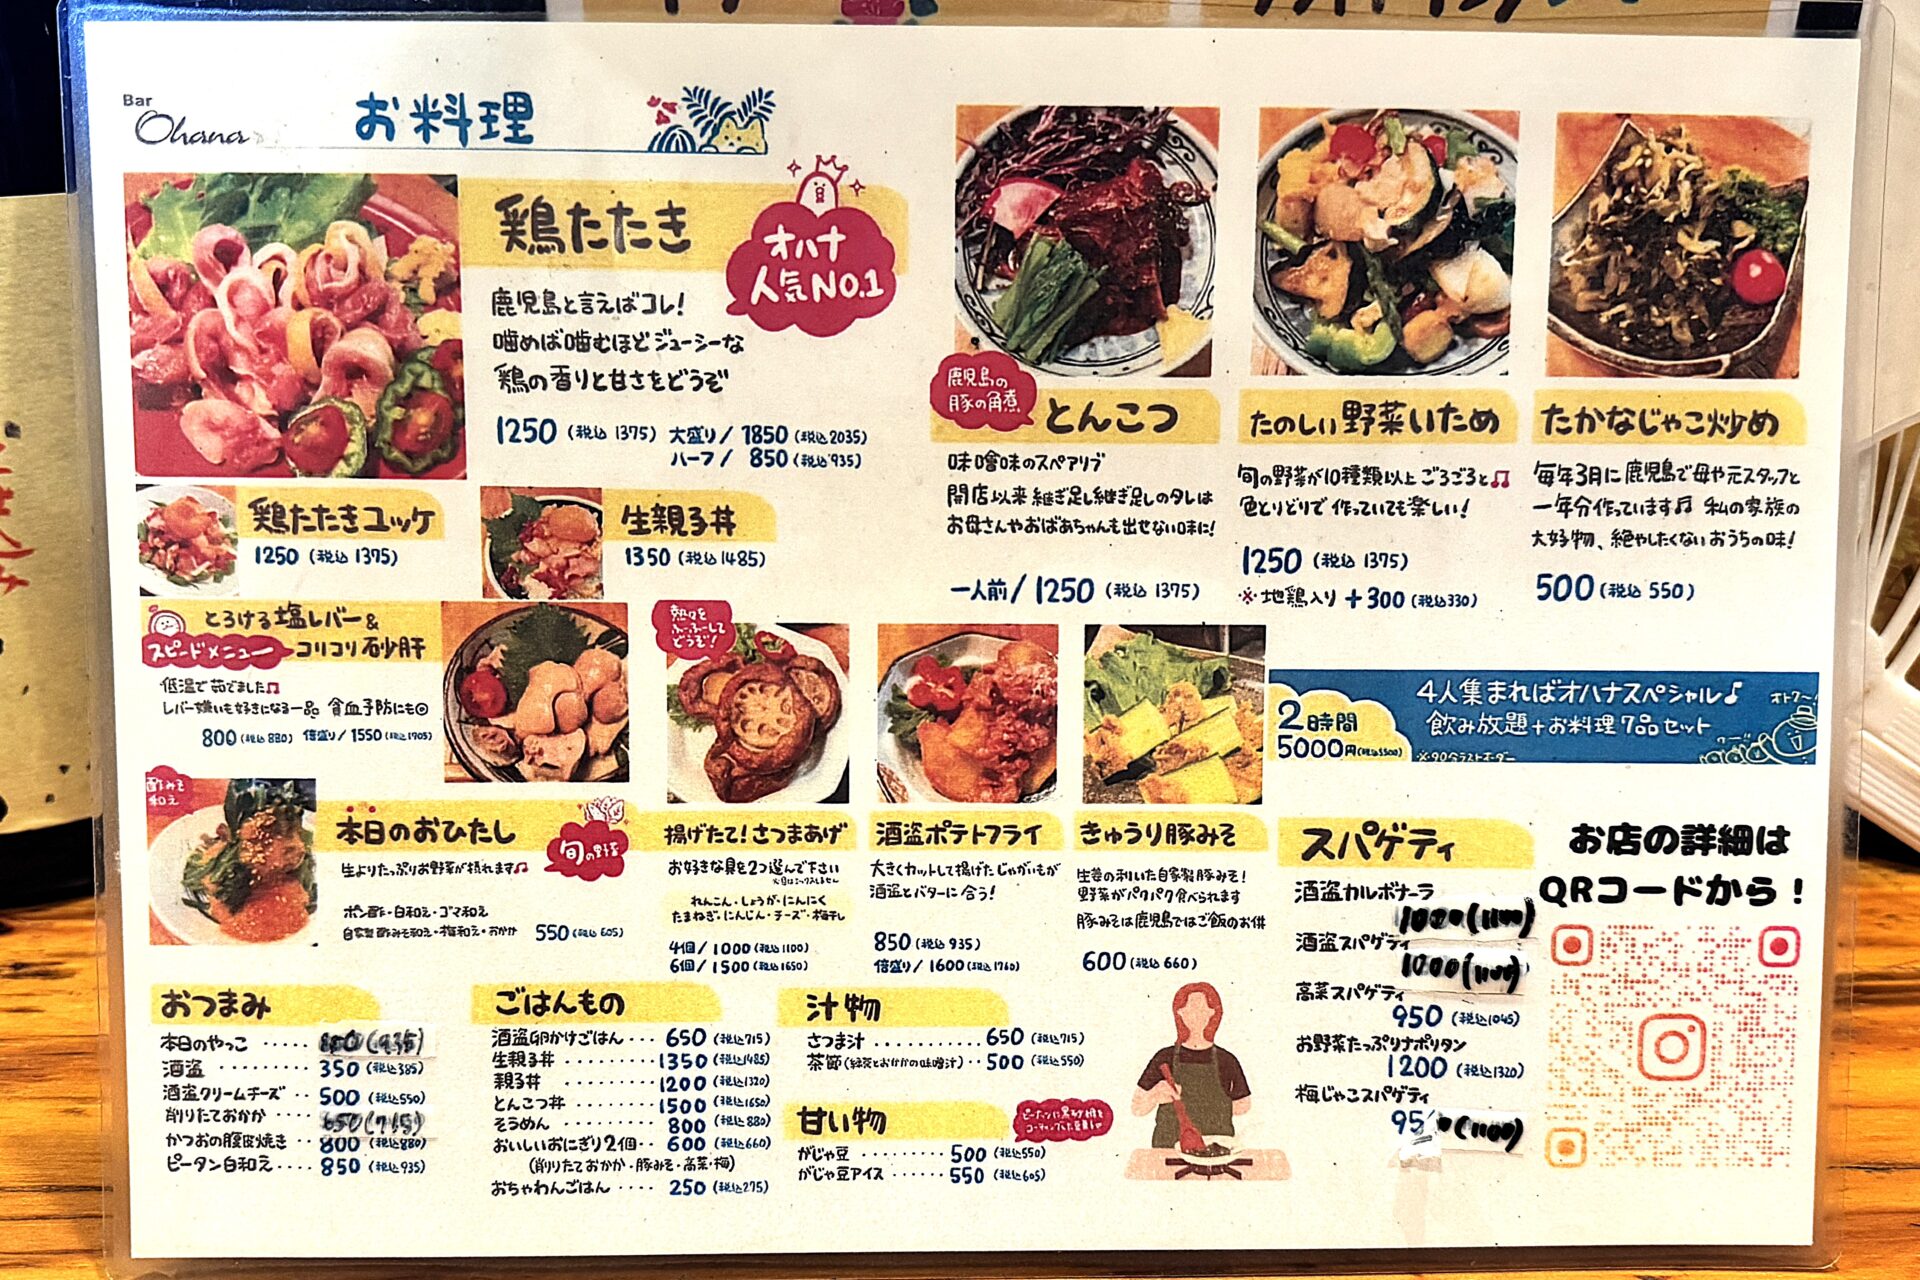 Bar
Ohana
お料理
鶏たたき
オハナ
人気NO.1
鹿児島と言えばコレ!
噛めば噛むほどジューシーな
鶏の香りと甘さをどうぞ
1250 (税込 1375) 大盛り/ 1850 (税込 2035)
ハーフ/ 850 (税込 935)
鶏たたきユッケ
1250 (税込 1375)
生親子丼
1350 (税込 1485)
とろける塩レバー&
スピードメニュー
コリコリ砂肝
低温で茹でました♫
レバー嫌いも好きになる一品 貧血予防にも◎
800 (税込 880) 倍盛り/ 1550 (税込 1705)
酢みそ
和え
本日のおひたし
旬の野菜
生よりたっぷりお野菜が摂れます♫
ポン酢・白和え・ゴマ和え
自家製酢みそ和え・梅和え・おかか 550 (税込 605)
鹿児島の
豚の角煮
とんこつ
味噌味のスペアリブ
開店以来 継ぎ足し継ぎ足しのタレは
お母さんやおばあちゃんも出せない味に!
一人前/ 1250 (税込 1375)
たのしい野菜いため
旬の野菜が10種類以上 ごろごろと♫
色とりどりで 作っていても楽しい!
1250 (税込 1375)
※地鶏入り +300 (税込 330)
たかなじゃこ炒め
毎年3月に鹿児島で母や元スタッフと
一年分作っています♫ 私の家族の
大好物、絶やしたくない おうちの味!
500 (税込 550)
熱々を
ふーふーして
どうぞ!
揚げたて!さつまあげ
お好きな具を2つ選んで下さい
れんこん・しょうが・にんにく
たまねぎ・にんじん・チーズ・梅干し
4個/ 1000 (税込 1100)
6個/ 1500 (税込 1650)
酒盗ポテトフライ
大きくカットして揚げたじゃがいもが
酒盗とバターに合う!
850 (税込 935)
倍盛り/ 1600 (税込 1760)
きゅうり豚みそ
生姜の利いた自家製豚みそ!
野菜がパクパク食べられます
豚みそは鹿児島ではご飯のお供
600 (税込 660)
2時間
5000円(税込5500)
4人集まればオハナスペシャル♪
飲み放題+お料理7品セット
※90分ラストオーダー
オトク〜
スパゲティ
酒盗カルボナーラ
1000(1100)
酒盗スパゲティ
1000(1100)
高菜スパゲティ
950 (税込 1045)
お野菜たっぷりナポリタン
1200 (税込 1320)
梅じゃこスパゲティ
(1100)
お店の詳細は
QRコードから!
おつまみ
本日のやっこ ····· (935)
酒盗 ········ 350 (税込 385)
酒盗クリームチーズ ·· 500 (税込 550)
削りたておかか ···· 650(715)
かつおの腹皮焼き ·· 800 (税込 880)
ピータン白和え ···· 850 (税込 935)
ごはんもの
酒盗卵かけごはん ··· 650 (税込 715)
生親子丼 ········· 1350 (税込 1485)
親子丼 ········· 1200 (税込 1320)
とんこつ丼 ········ 1500 (税込 1650)
そうめん ········ 800 (税込 880)
おいしいおにぎり2個 ·· 600 (税込 660)
(削りたておかか・豚みそ・高菜・梅)
おちゃわんごはん ···· 250 (税込 275)
汁物
さつま汁 ·········· 650 (税込 715)
茶節(緑茶とおかかの味噌汁) ·· 500 (税込 550)
甘い物
ピーナッツに黒砂糖を
がじゃ豆 ········· 500 (税込 550)
がじゃ豆アイス ····· 550 (税込 605)